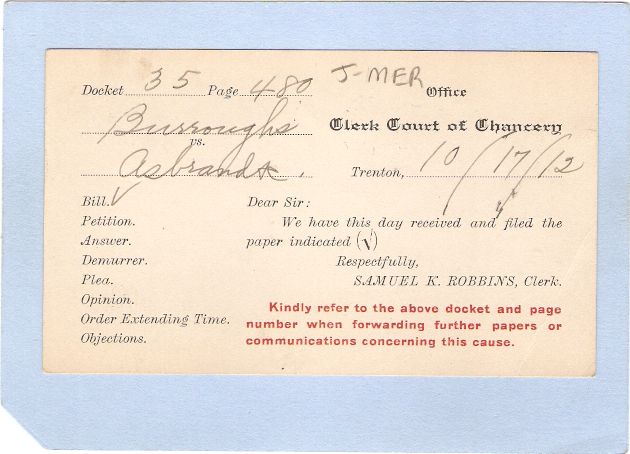 J-MER
Docket 35 Page 480
Office
Burroughs
Clerk Court of Chancery
vs.
Asbrandt.
Trenton, 10/17/12
Bill. √
Dear Sir:
Petition.
We have this day received and filed the
Answer.
paper indicated (√)
Demurrer.
Respectfully,
Plea.
SAMUEL K. ROBBINS, Clerk.
Opinion.
Order Extending Time.
Objections.
Kindly refer to the above docket and page
number when forwarding further papers or
communications concerning this cause.